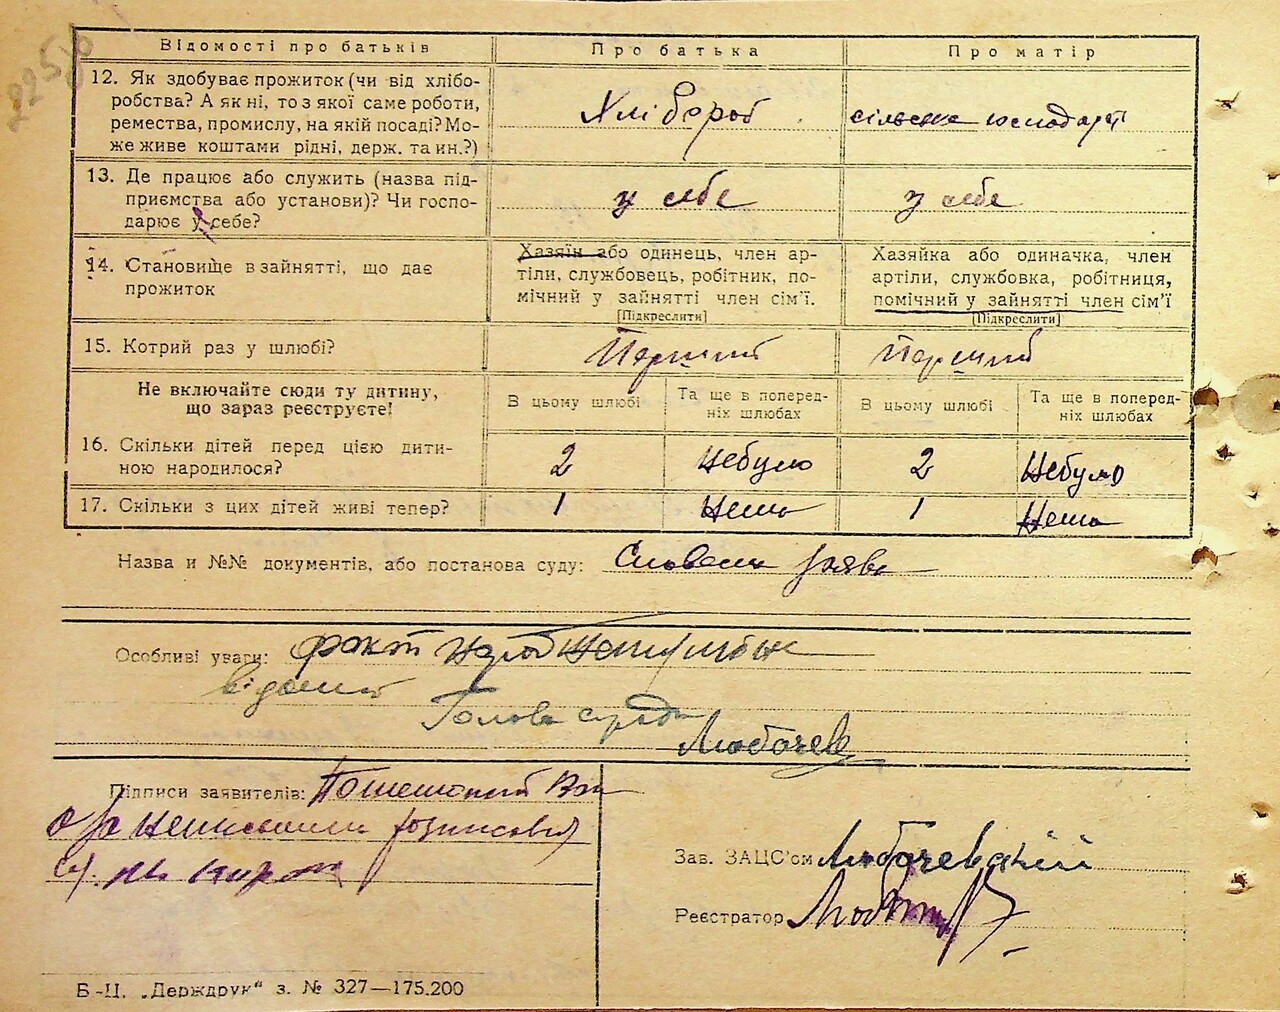 Відомості про батьків
Про батька
Про матір
12. Як здобуває прожиток (чи від хлібо-
робства? А як ні, то з якої саме роботи,
ремества, промислу, на якій посаді? Мо-
же живе коштами рідні, держ. та ин.?)
Хлібороб
сільське господарст
13. Де працює або служить (назва під-
приємства або установи)? Чи госпо-
дарює у себе?
у себе
у себе
14. Становище в зайнятті, що дає
прожиток
Хазяїн або одинець, член ар-
тіли, службовець, робітник, по-
мічний у зайнятті член сім'ї.
[Підкреслити]
Хазяйка або одиначка, член
артіли, службовка, робітниця,
помічний у зайнятті член сім'ї
[Підкреслити]
15. Котрий раз у шлюбі?
Перший
Перший
Не включайте сюди ту дитину,
що зараз реєструєте!
В цьому шлюбі
Та ще в поперед-
ніх шлюбах
В цьому шлюбі
Та ще в поперед-
ніх шлюбах
16. Скільки дітей перед цією дити-
ною народилося?
2
Небуло
2
Небуло
17. Скільки з цих дітей живі тепер?
1
Нема
1
Нема
Назва и №№ документів, або постанова суду: Словесна заява
Особливі уваги: факт
відомий
Голова с/ради
Підписи заявителів:
Зав. ЗАЦС'ом Любачевский
Реєстратор
Б-Ц. „Держдрук“ з. № 327—175.200